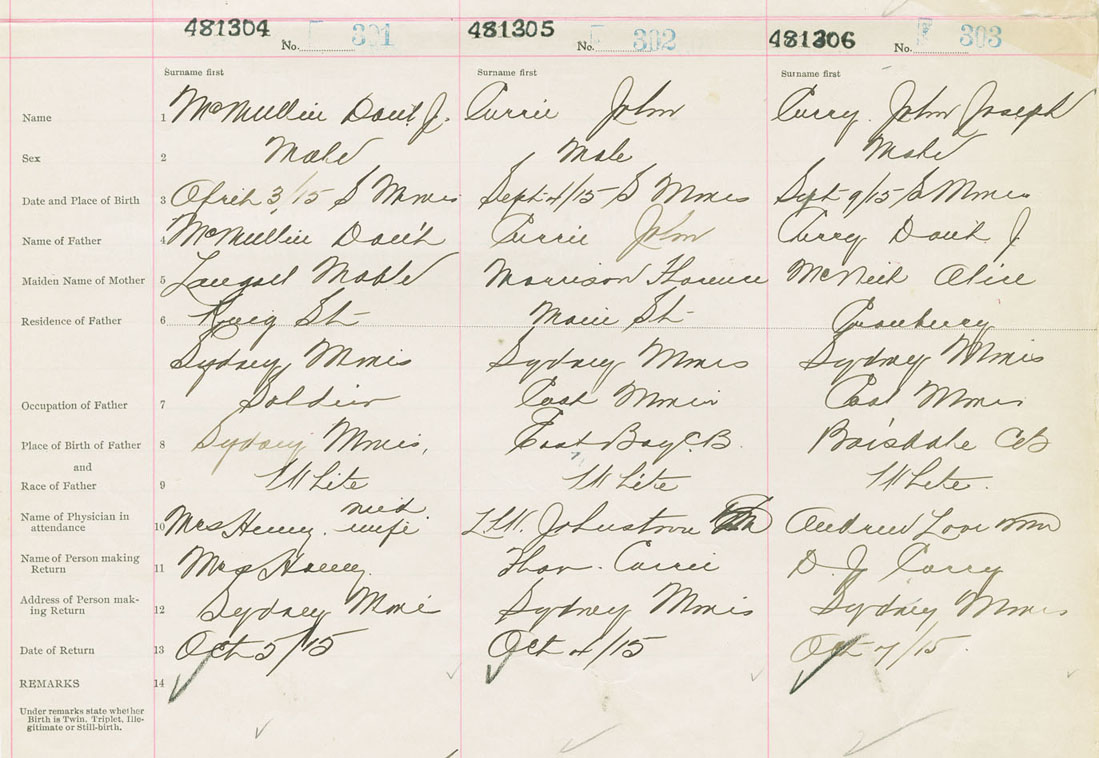 481304 No. 301 481305 No. 302 481306 No. 303
Surname first Surname first Surname first
Name 1 McMullin Davd. J. Currie John Curry. John Joseph
Sex 2 Male Male Male
Date and Place of Birth 3 3/15 S Mines Sept 4/15 S Mines Sept 9/15 S Mines
Name of Father 4 McMullin Currie John Curry J.
Maiden Name of Mother 5 Mable Morrison Florence McNeil Alice
Residence of Father 6 King St Main St Cranberry
Sydney Mines Sydney Mines Sydney Mines
Occupation of Father 7 Soldier Coal Miner Coal Miner
Place of Birth of Father 8 Sydney Mines, East Bay C.B. Boisdale CB
and
Race of Father 9 White White White.
Name of Physician in
attendance 10 Mrs mid wife Johnstone Andrew Love
Name of Person making
Return 11 Mrs Currie D. J. Curry
Address of Person mak-
ing Return 12 Sydney Mines Sydney Mines Sydney Mines
Date of Return 13 Oct 5/15 Oct 4/15 Oct 7/15.
REMARKS 14
Under remarks state whether
Birth is Twin, Triplet, Ille-
gitimate or Still-birth.